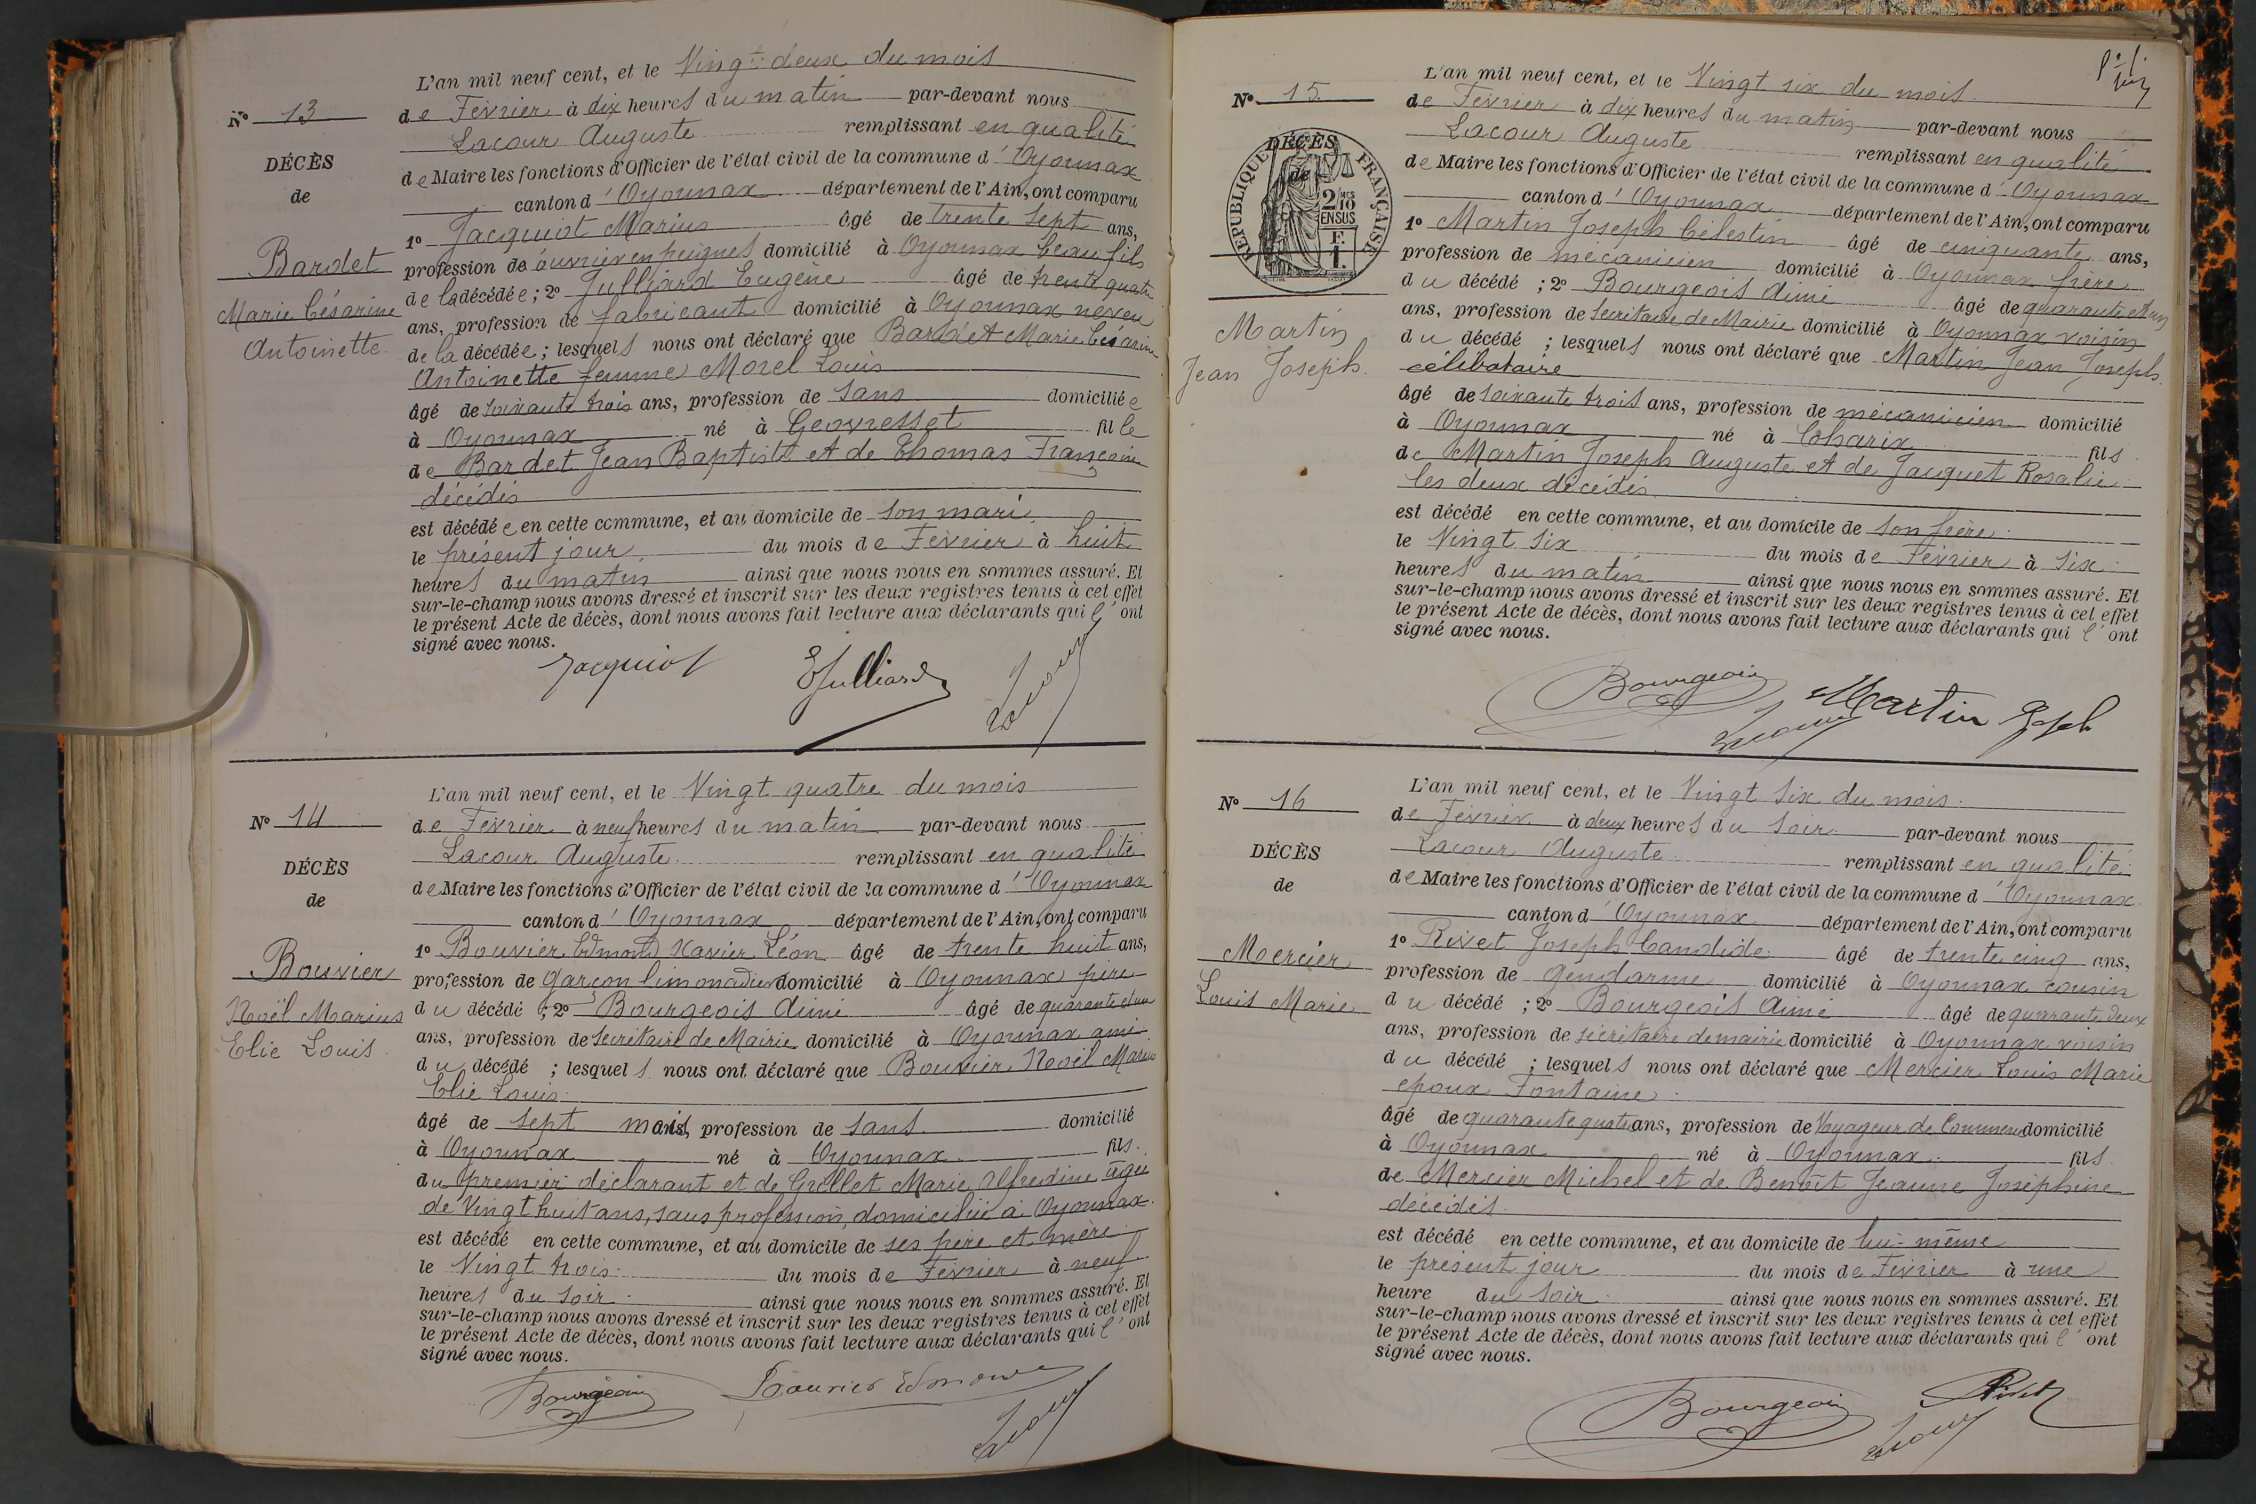 N° 13
DÉCÈS
de
Bardet
Marie Césarine
Antoinette
L'an mil neuf cent, et le Vingt deux du mois
de Février à dix heures du matin par-devant nous
Lacour Auguste remplissant en qualité
de Maire les fonctions d'Officier de l'état civil de la commune d'Oyonnax
canton d'Oyonnax département de l'Ain, ont comparu
1° Jacquiot Marius âgé de trente sept ans,
profession de ouvrier en peignes domicilié à Oyonnax beau fils
de la décédée ; 2° Julliard Eugène âgé de trente quatre
ans, profession de fabricant domicilié à Oyonnax neveu
de la décédée ; lesquels nous ont déclaré que Bardet Marie Césarine
Antoinette femme Morel Louis
âgé de soixante trois ans, profession de sans domiciliée
à Oyonnax né à Geovresset fille
de Bardet Jean Baptiste et de Thomas Françoise
décédés
est décédée en cette commune, et au domicile de son mari
le présent jour du mois de Février à huit
heures du matin ainsi que nous nous en sommes assuré. Et
sur-le-champ nous avons dressé et inscrit sur les deux registres tenus à cet effet
le présent Acte de décès, dont nous avons fait lecture aux déclarants qui l'ont
signé avec nous.
Jacquiot EJulliard Lacour
N° 14
DÉCÈS
de
Bouvier
Noël Marius
Elie Louis
L'an mil neuf cent, et le Vingt quatre du mois
de Février à neuf heures du matin par-devant nous
Lacour Auguste remplissant en qualité
de Maire les fonctions d'Officier de l'état civil de la commune d'Oyonnax
canton d'Oyonnax département de l'Ain, ont comparu
1° Bouvier Edmond Xavier Léon âgé de trente huit ans,
profession de garçon limonadier domicilié à Oyonnax père
du décédé ; 2° Bourgeois Aimé âgé de quarante et un
ans, profession de Secrétaire de Mairie domicilié à Oyonnax ami
du décédé ; lesquels nous ont déclaré que Bouvier Noël Marius
Elie Louis
âgé de sept mois, profession de sans domicilié
à Oyonnax né à Oyonnax fils
du premier déclarant et de Grellet Marie Alfredine âgée
de Vingt huit ans, sans profession, domiciliée à Oyonnax
est décédé en cette commune, et au domicile de ses père et mère
le Vingt trois du mois de Février à neuf
heures du soir ainsi que nous nous en sommes assuré. Et
sur-le-champ nous avons dressé et inscrit sur les deux registres tenus à cet effet
le présent Acte de décès, dont nous avons fait lecture aux déclarants qui l'ont
signé avec nous.
Bourgeois Bouvier Edmond Lacour
N° 15
RÉPUBLIQUE FRANÇAISE
DÉCÈS
de
2 MES
10
EN SUS
F.
1.
Martin
Jean Joseph
L'an mil neuf cent, et le Vingt six du mois
de Février à dix heures du matin par-devant nous
Lacour Auguste remplissant en qualité
de Maire les fonctions d'Officier de l'état civil de la commune d'Oyonnax
canton d'Oyonnax département de l'Ain, ont comparu
1° Martin Joseph Célestin âgé de cinquante ans,
profession de mécanicien domicilié à Oyonnax frère
du décédé ; 2° Bourgeois Aimé âgé de quarante et un
ans, profession de Secrétaire de Mairie domicilié à Oyonnax voisin
du décédé ; lesquels nous ont déclaré que Martin Jean Joseph
célibataire
âgé de soixante trois ans, profession de mécanicien domicilié
à Oyonnax né à Charix fils
de Martin Joseph Auguste et de Jacquet Rosalie
les deux décédés
est décédé en cette commune, et au domicile de son frère
le Vingt six du mois de Février à six
heures du matin ainsi que nous nous en sommes assuré. Et
sur-le-champ nous avons dressé et inscrit sur les deux registres tenus à cet effet
le présent Acte de décès, dont nous avons fait lecture aux déclarants qui l'ont
signé avec nous.
Bourgeois Lacour Martin Joseph
N° 16
DÉCÈS
de
Mercier
Louis Marie
L'an mil neuf cent, et le Vingt six du mois
de Février à deux heures du soir par-devant nous
Lacour Auguste remplissant en qualité
de Maire les fonctions d'Officier de l'état civil de la commune d'Oyonnax
canton d'Oyonnax département de l'Ain, ont comparu
1° Rivet Joseph Candide âgé de trente cinq ans,
profession de gendarme domicilié à Oyonnax cousin
du décédé ; 2° Bourgeois Aimé âgé de quarante deux
ans, profession de secrétaire de mairie domicilié à Oyonnax voisin
du décédé ; lesquels nous ont déclaré que Mercier Louis Marie
époux Fontaine
âgé de quarante quatre ans, profession de Voyageur de Commerce domicilié
à Oyonnax né à Oyonnax fils
de Mercier Michel et de Benoît Jeanne Joséphine
décédés
est décédé en cette commune, et au domicile de lui-même
le présent jour du mois de Février à une
heure du soir ainsi que nous nous en sommes assuré. Et
sur-le-champ nous avons dressé et inscrit sur les deux registres tenus à cet effet
le présent Acte de décès, dont nous avons fait lecture aux déclarants qui l'ont
signé avec nous.
Bourgeois Rivet Lacour